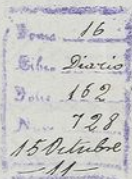 Tomo 16
Libro Diario
Folio 162
N. 728
15 Octubre
11